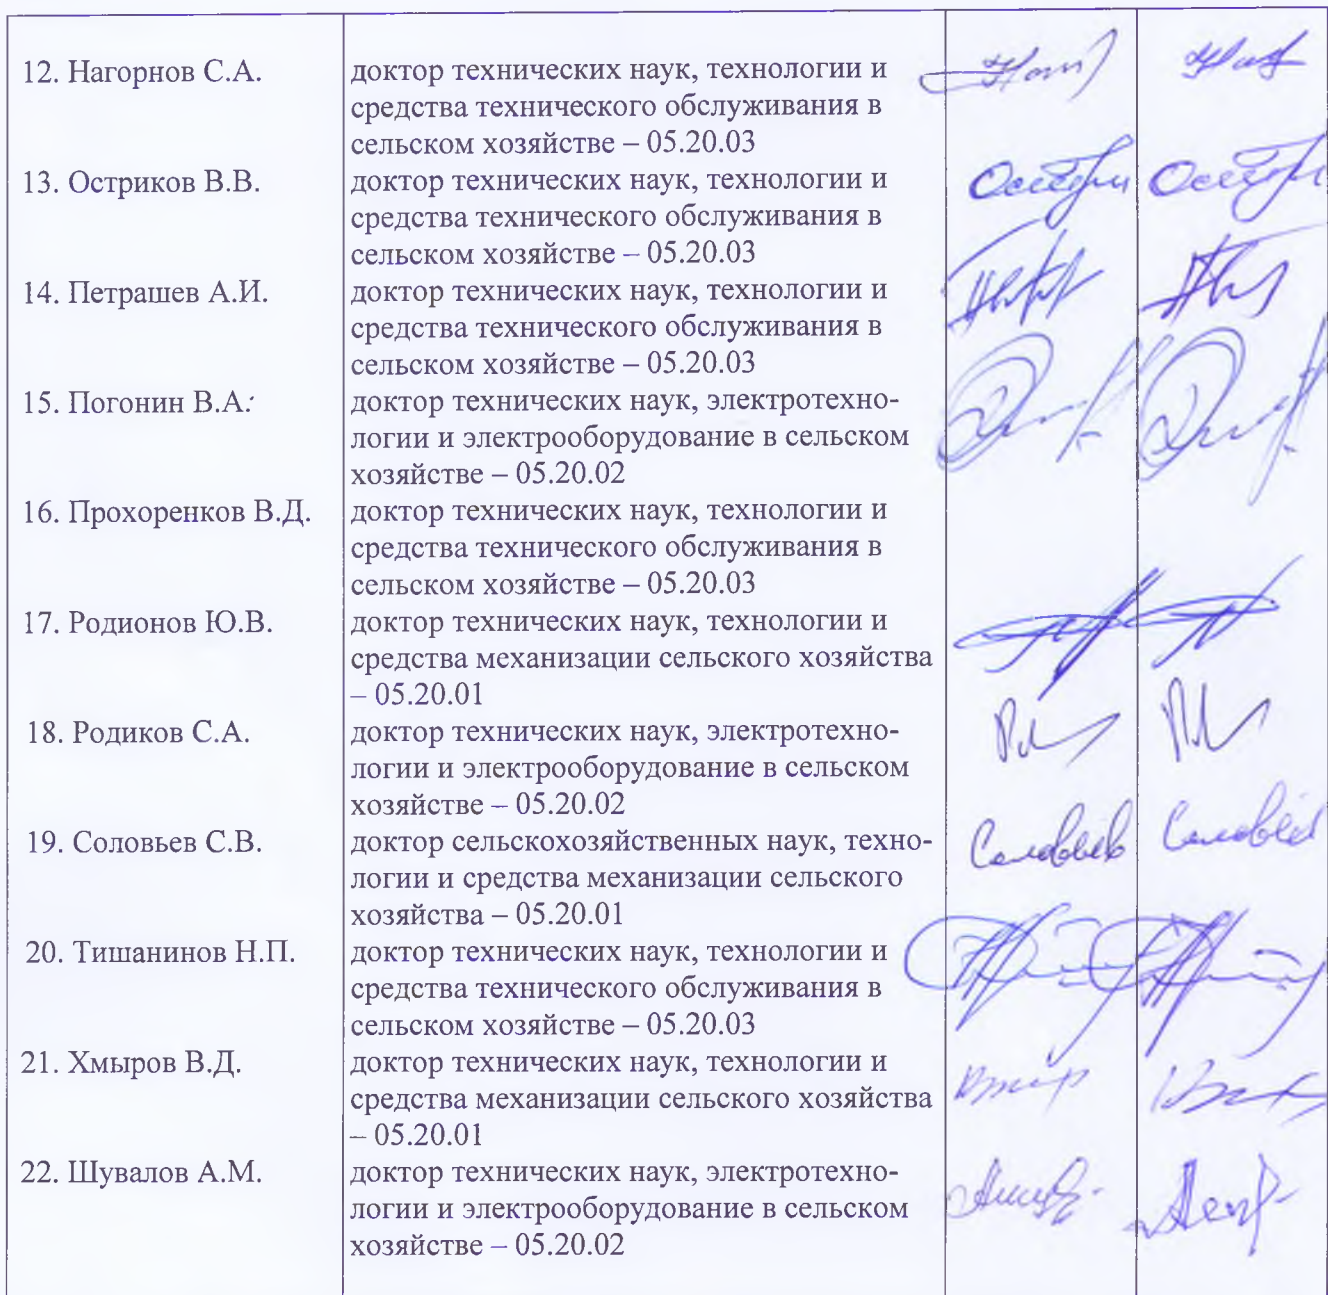 12. Нагорнов С.А.
доктор технических наук, технологии и
средства технического обслуживания в
сельском хозяйстве – 05.20.03
13. Остриков В.В.
доктор технических наук, технологии и
средства технического обслуживания в
сельском хозяйстве – 05.20.03
14. Петрашев А.И.
доктор технических наук, технологии и
средства технического обслуживания в
сельском хозяйстве – 05.20.03
15. Погонин В.А.
доктор технических наук, электротехно-
логии и электрооборудование в сельском
хозяйстве – 05.20.02
16. Прохоренков В.Д.
доктор технических наук, технологии и
средства технического обслуживания в
сельском хозяйстве – 05.20.03
17. Родионов Ю.В.
доктор технических наук, технологии и
средства механизации сельского хозяйства
– 05.20.01
18. Родиков С.А.
доктор технических наук, электротехно-
логии и электрооборудование в сельском
хозяйстве – 05.20.02
19. Соловьев С.В.
доктор сельскохозяйственных наук, техно-
логии и средства механизации сельского
хозяйства – 05.20.01
Соловьев Соловьев
20. Тишанинов Н.П.
доктор технических наук, технологии и
средства технического обслуживания в
сельском хозяйстве – 05.20.03
21. Хмыров В.Д.
доктор технических наук, технологии и
средства механизации сельского хозяйства
– 05.20.01
22. Шувалов А.М.
доктор технических наук, электротехно-
логии и электрооборудование в сельском
хозяйстве – 05.20.02